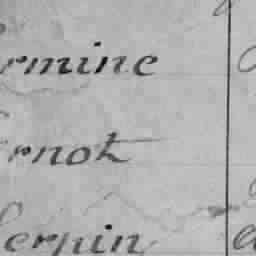 rmine
rnot
erpin